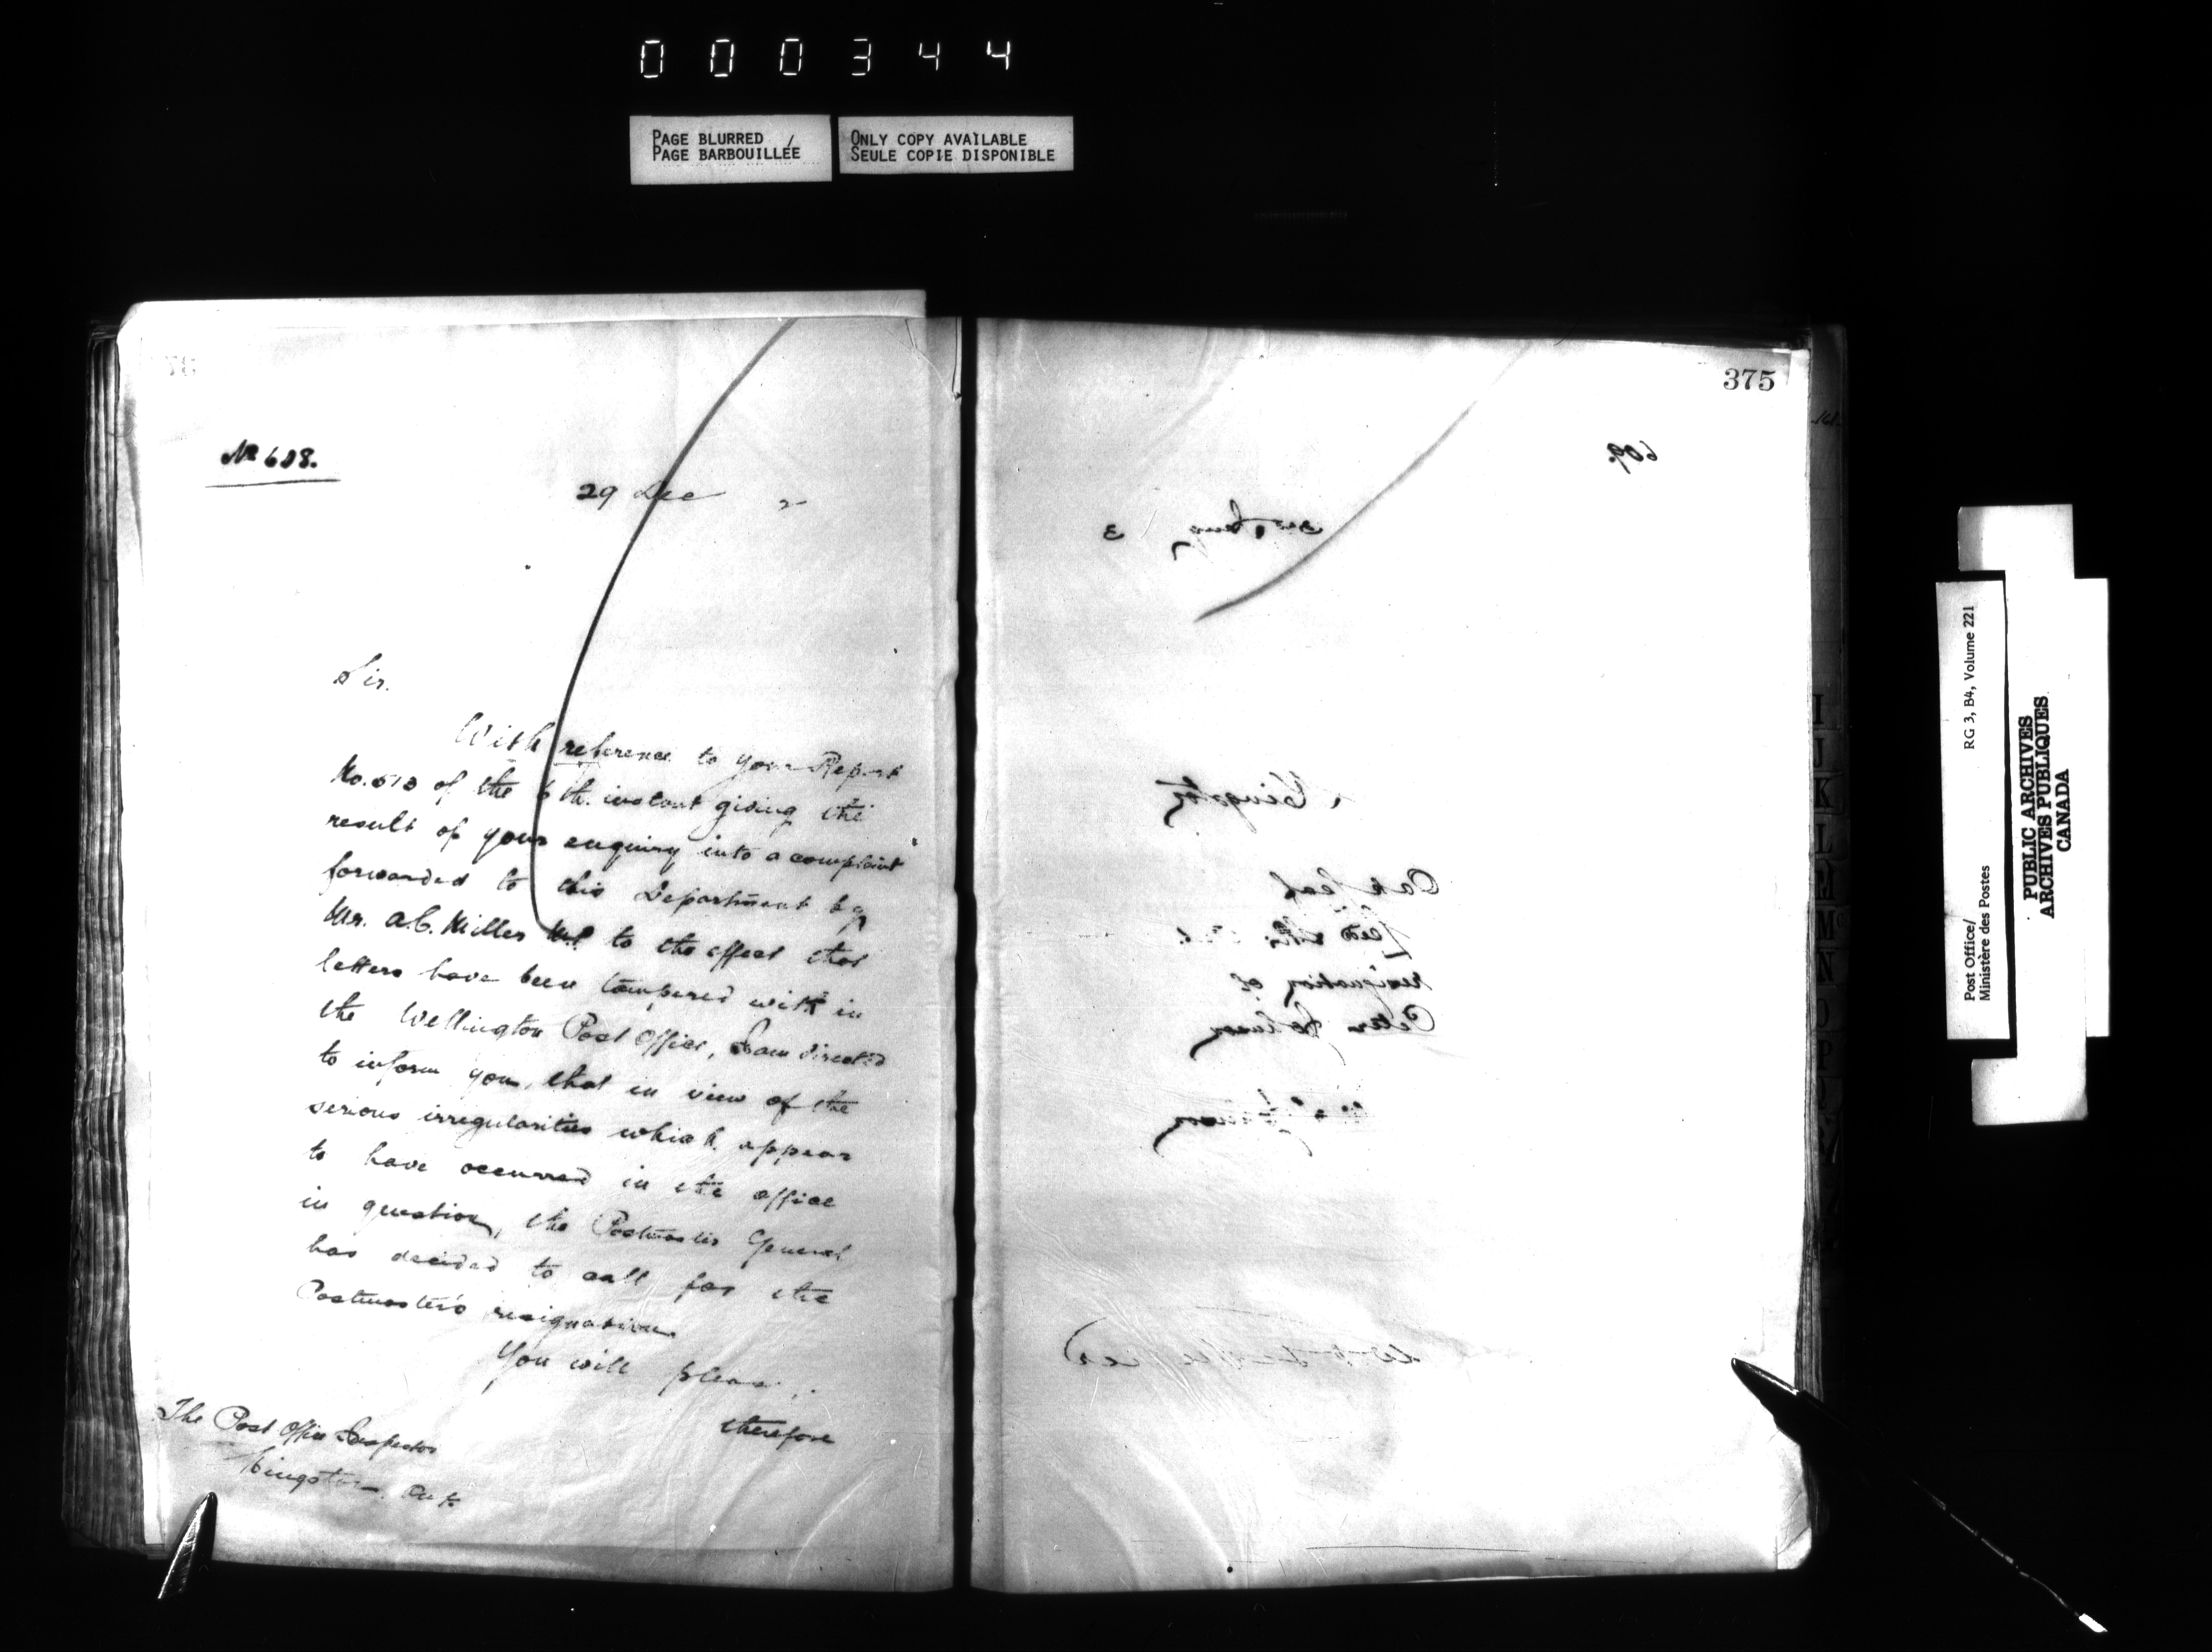 000344
PAGE BLURRED
PAGE BARBOUILLÉE
ONLY COPY AVAILABLE
SEULE COPIE DISPONIBLE
No 608.
29 Dec 2
Sir.
With reference to your Report
No. 513 of the 6th. instant giving the
result of your enquiry into a complaint
forwarded to this Department by
Mr. A.C. Miller M.P. to the effect that
letters have been tampered with in
the Wellington Post Office, I am directed
to inform you, that in view of the
serious irregularities which appear
to have occurred in the office
in question, the Postmaster General
has decided to call for the
Postmaster's resignation.
You will please
therefore
The Post Office Inspector
Kingston. Ont.
375
609.
3
Kingston
Oak Leaf
Leeds
resignation of
Peter Johnson
Johnson
Post Office/
Ministère des Postes
RG 3, B4, Volume 221
PUBLIC ARCHIVES
ARCHIVES PUBLIQUES
CANADA
I
J
K
L
M
N
O
P